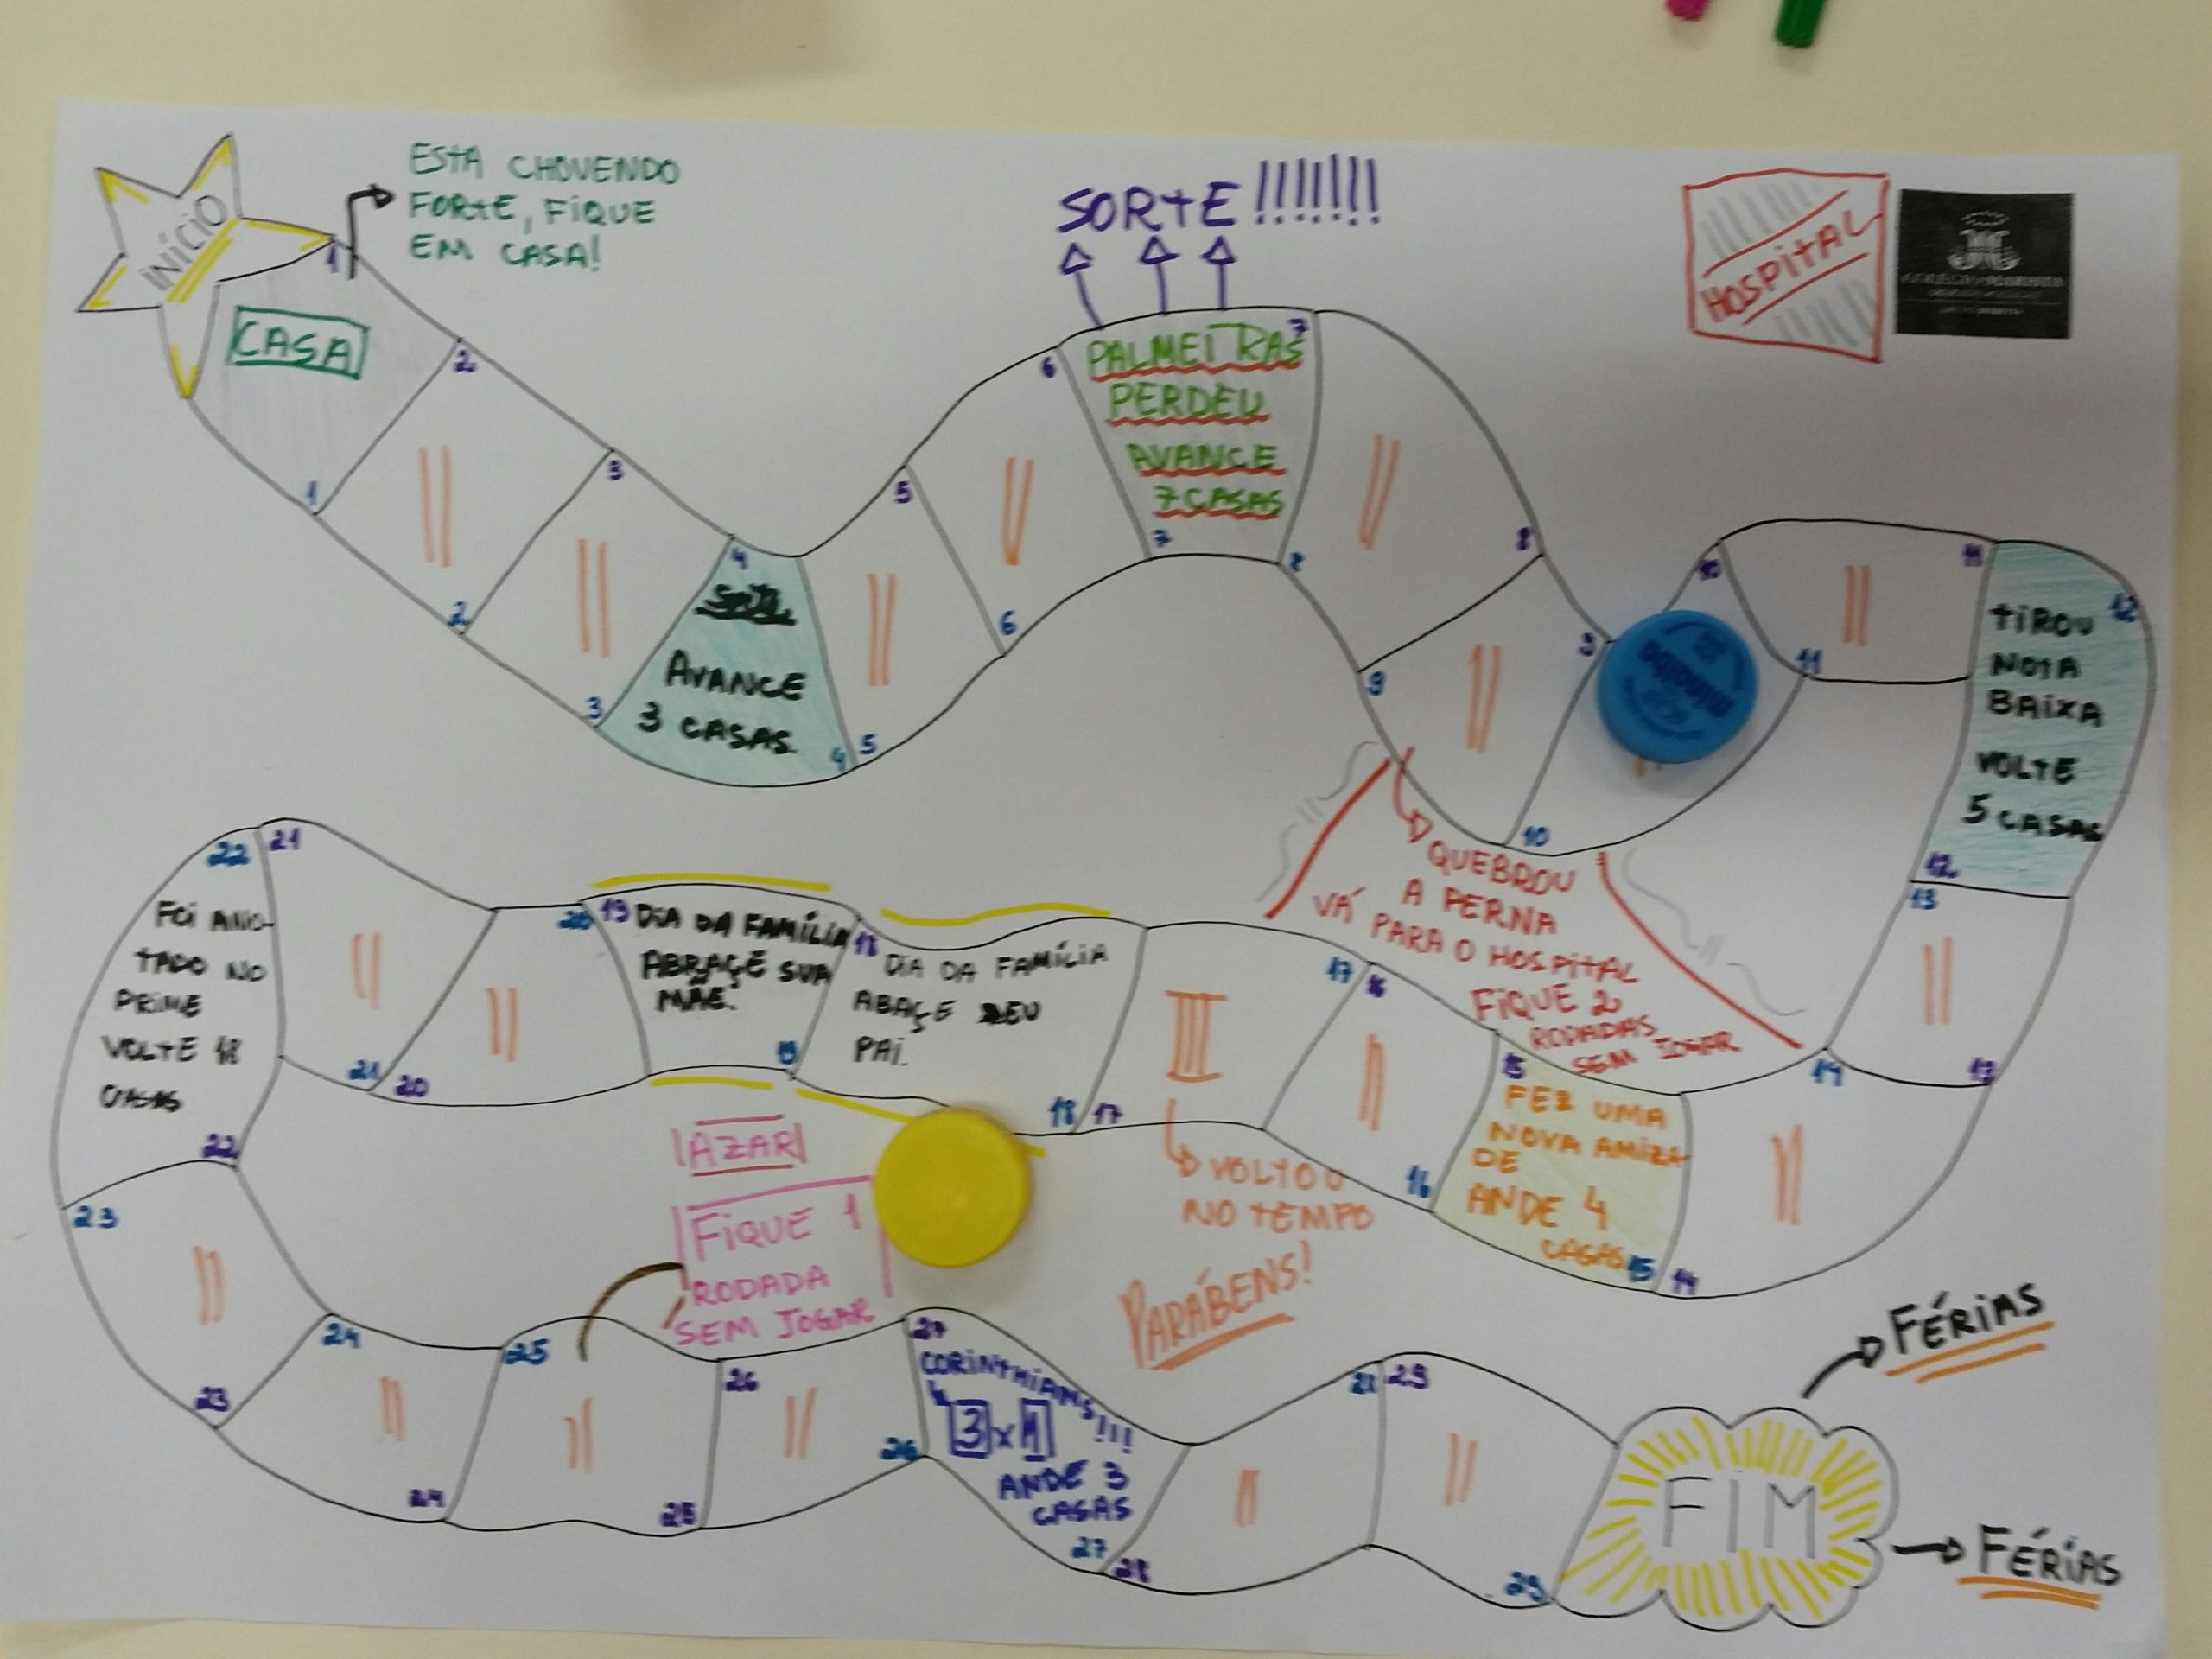 INÍCIO
ESTA CHOVENDO
FORTE, FIQUE
EM CASA!
SORTE!!!!!!!
HOSPITAL
1
CASA
1
2
2
3
3
4
AVANCE
3 CASAS.
4
5
5
6
6
PALMEIRAS
PERDEU
AVANCE
7 CASAS
7
7
8
8
9
9
10
10
mineiba
11
11
12
TIROU
NOTA
BAIXA
VOLTE
5 CASAS
12
13
13
QUEBROU
A PERNA
VÁ PARA O HOSPITAL
FIQUE 2
RODADAS
SEM JOGAR
14
14
15
FEZ UMA
NOVA AMIZA
DE
ANDE 4
CASAS
15
16
16
17
17
VOLTOU
NO TEMPO
PARÁBENS!
18
DIA DA FAMÍLIA
ABAÇE SEU
PAI.
18
19
DIA DA FAMÍLIA
ABRAÇE SUA
MÃE.
19
20
20
21
21
22
FOI ANO-
TADO NO
PRIME
VOLTE 18
CASAS
22
23
23
24
24
25
25
AZAR
FIQUE 1
RODADA
SEM JOGAR
26
26
27
CORINTHIANS!!!
3x1
ANDE 3
CASAS
27
28
28
29
29
FIM
FÉRIAS
FÉRIAS